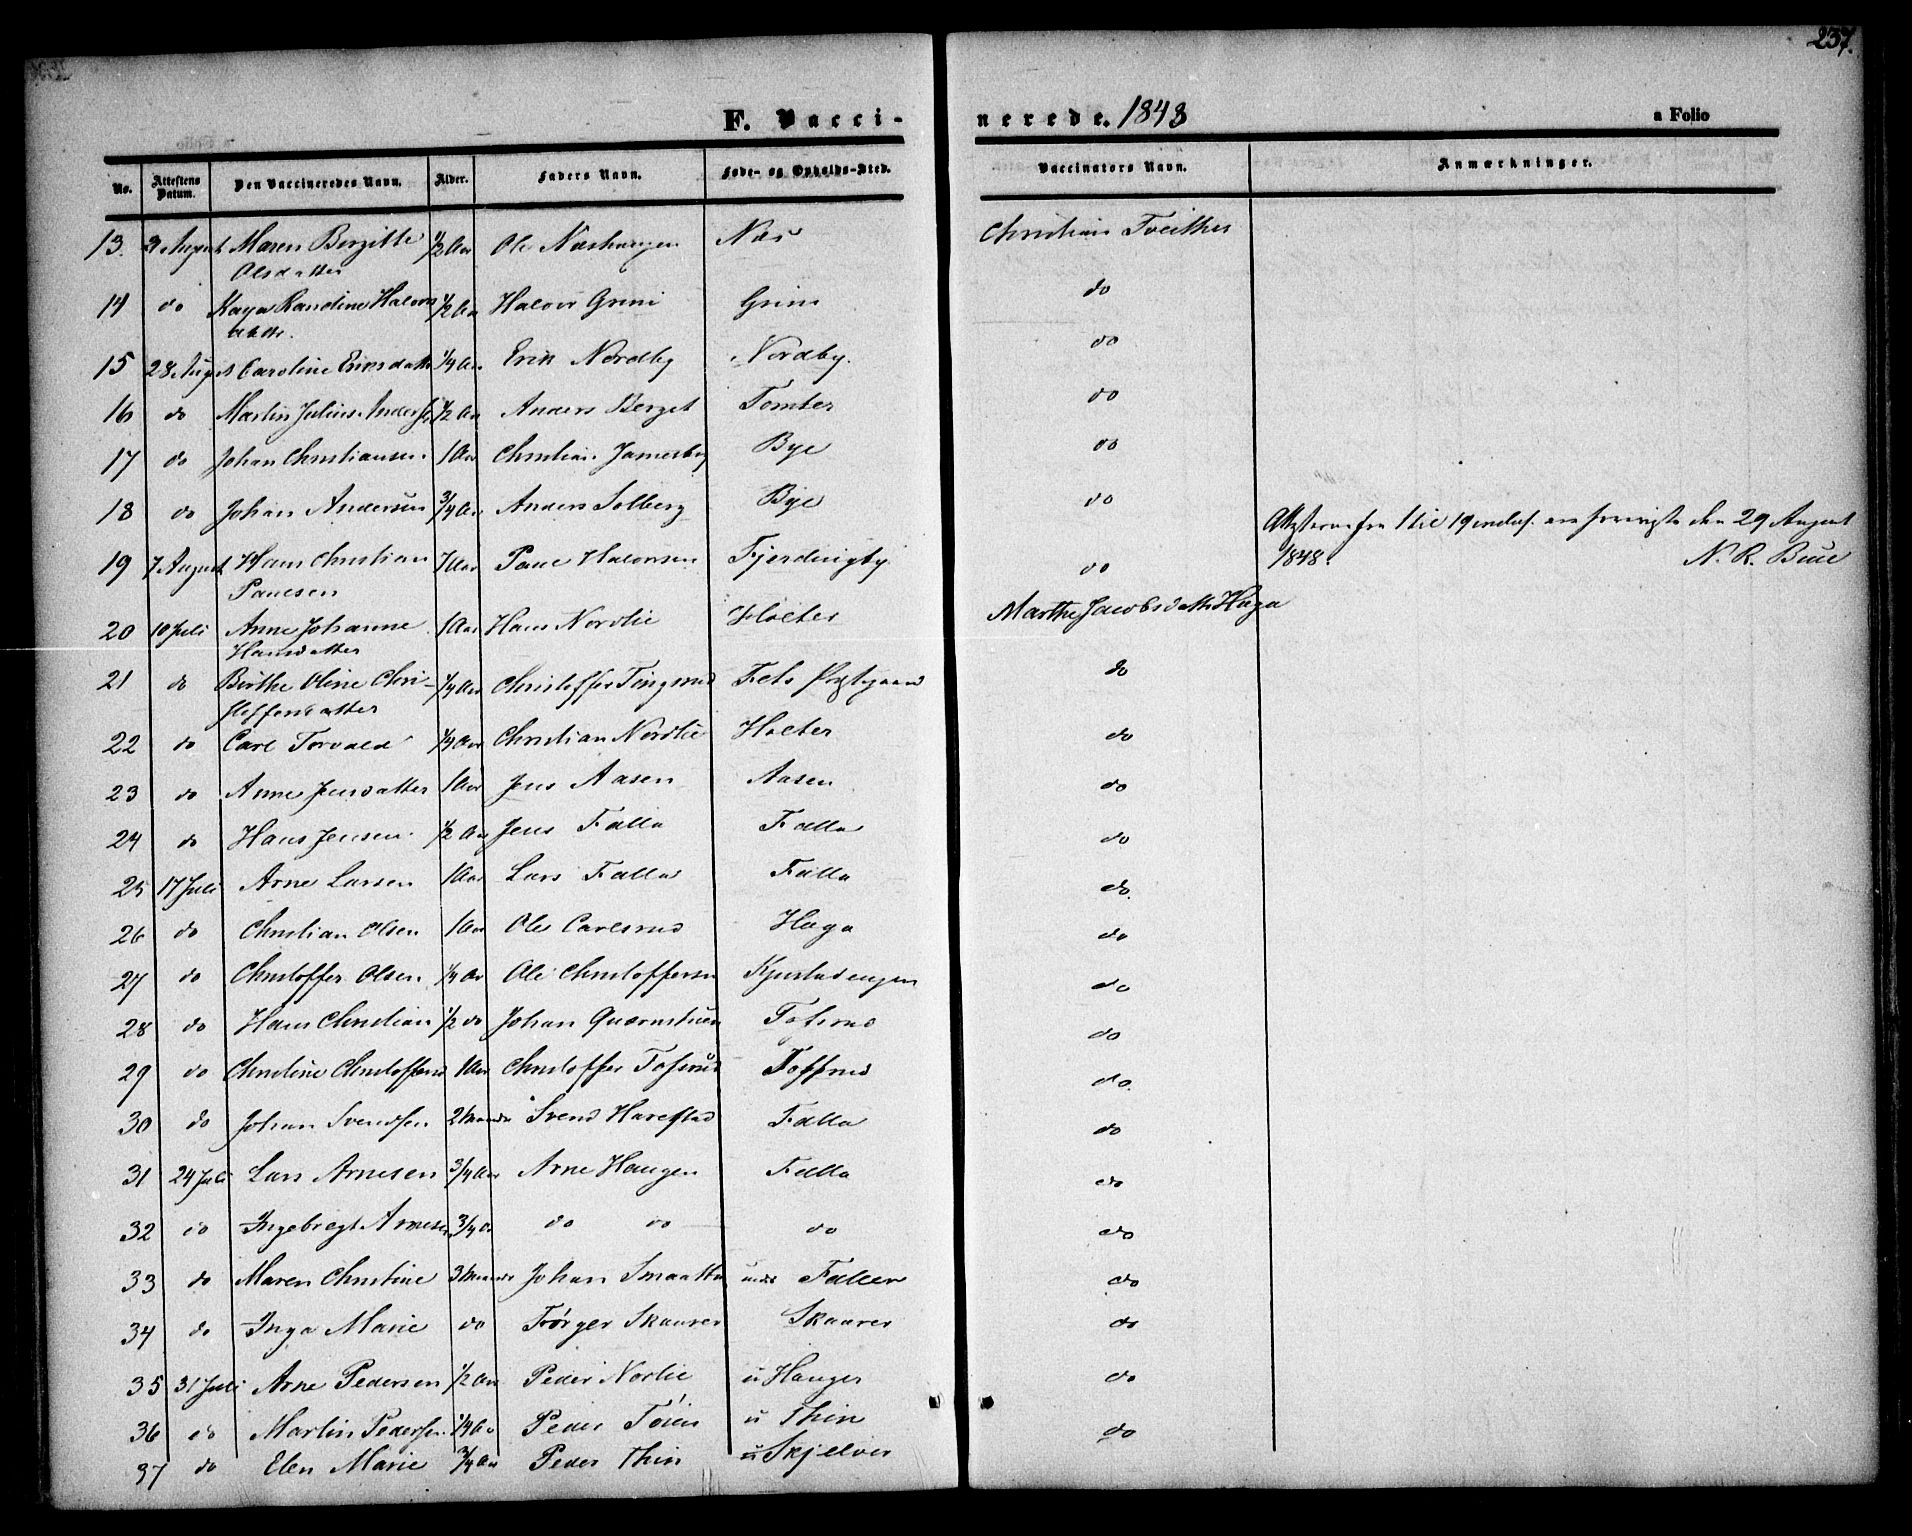 237.
F. Vaccinerede. 1848 a Folio
No. Attestens Datum. Den Vaccineredes Navn. Alder. Faders Navn. Føde- og Opholds-Sted. Vaccinators Navn. Anmærkninger.
13. August Maren Birgitte Olsdatter 1/2 Aar Ole Næshaugen Næs Christian Tveither
14 do Kaya Randine Halvors datter. 1/2 Aar Halvor Grini Grini do
15 28 August Caroline Eriksdatter 1/4 Aar Erik Nordby Nordby. do
16 do Martin Julius Anders 1/2 Aar Anders Berget Tomter do
17 do Johan Christiansen 1 Aar Christian Bye do
18 do Johan Andersen 3/4 Aar Anders Solberg Bye do
19 7 August Hans Christian Paulsen 7 Aar Paul Halvorsen Fjerdingby do
Attesterne fra 1 til 19 inclus. ere den 29 August
1848. N. R. Bull
20 10 Juli Anne Johanne Hansdatter 1 Aar Hans Nordlie Holter Marthe Jacobsdatter Haga
21 do Birthe Oline Christoffersdatter 1/4 Aar Christoffer Tingsrud Fets Præstegaard do
22 do Carl Torvald 1/4 Aar Christian Nordlie Holter do
23 do Anne Jensdatter 1 Aar Jens Aasen Aasen do
24 do Hans Jensen 1/2 Aar Jens Falla Falla do
25 17 Juli Arne Larsen 1 Aar Lars Falla Falla do.
26 do Christian Olsen 1 Aar Ole Carlsrud Haga do
27 do Christoffer Olsen 1/4 Aar Ole Christoffersen Kjustadengen do
28 do Hans Christian 1/2 do Johan Quernstuen Tofsrud do
29 do Christine Christoffersd 1 Aar Christoffer Tofsrud Toffsrud do.
30 do Johan Svendsen 2 Maaneder Svend Harestad Falla do
31 24 Juli Lars Arnesen 3/4 Aar Arne Haugen Falla do
32 do Ingebregt Arnesen 3/4 do do do do do
33 do Maren Christine 3 Maaneder Johan Smaatten under Faller do
34 do Inga Marie do Torger Skaarer Skaarer do
35 31 Juli Arne Pedersen 1/2 Aar Peder Norlie u Hauger do
36 do Martin Pedersen 1/4 Aar Peder Tøien u Thin do
37 do Elen Marie 3/4 Aar Peder Thin u Skjelver